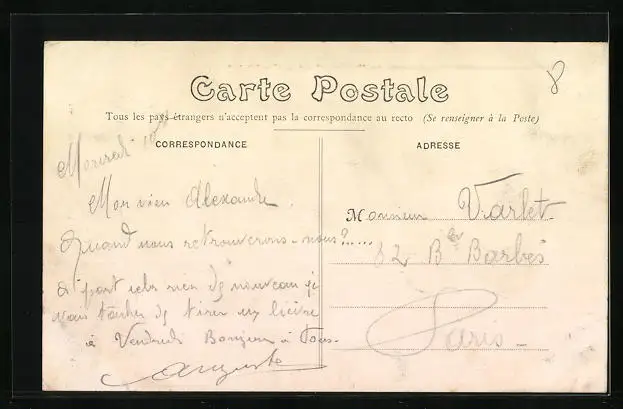 8
Carte Postale
Tous les pays étrangers n'acceptent pas la correspondance au recto (Se renseigner à la Poste)
CORRESPONDANCE
ADRESSE
Mercredi
Mon vieux Alexandre.
Quand nous retrouverons-nous?.....
à part cela rien de nouveau je
vais tâcher de tirer un lièvre
à Vendredi Bonjour à Tous.
Auguste
Monsieur Varlet
62 Bd Barbès
Paris